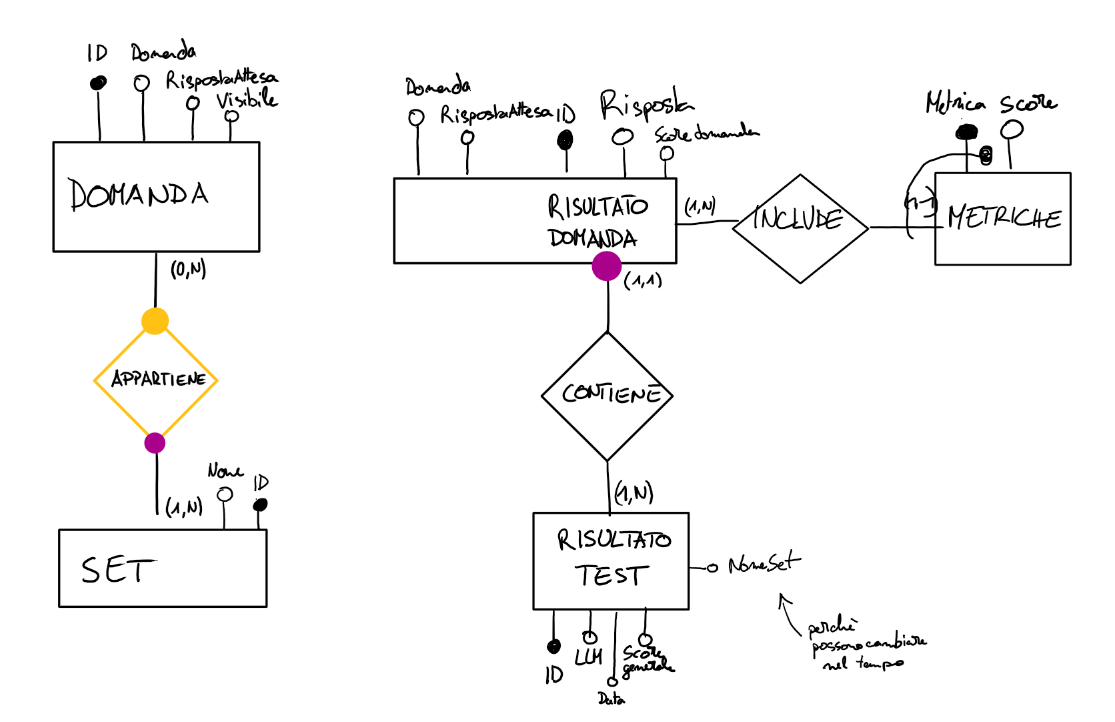 ID
Domanda
RispostaAttesa
Visibile
DOMANDA
(0,N)
APPARTIENE
(1,N)
Nome
ID
SET
Domanda
RispostaAttesa
ID
Risposta
Score domanda
RISULTATO
DOMANDA
(1,N)
INCLUDE
(1,1)
Metrica
Score
METRICHE
(1,1)
CONTIENE
(1,N)
RISULTATO
TEST
NomeSet
perchè
possono cambiare
nel tempo
ID
LLM
Data
Score
generale